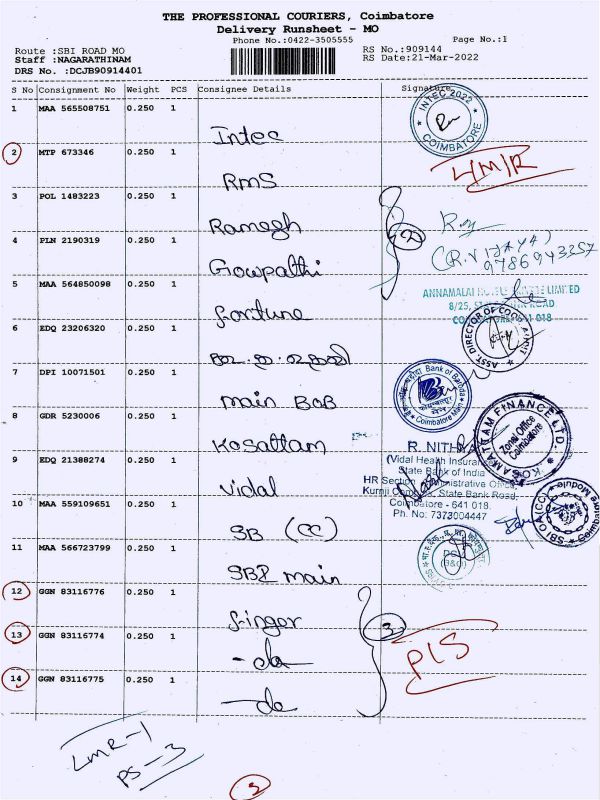 THE PROFESSIONAL COURIERS, Coimbatore
Delivery Runsheet - MO
Phone No.:0422-3505555 Page No.:1
Route :SBI ROAD MO RS No.:909144
Staff :NAGARATHINAM RS Date:21-Mar-2022
DRS No. :DCJB90914401
S No Consignment No Weight PCS Consignee Details Signature
1 MAA 565508751 0.250 1 Intec
INTEC 2022 COIMBATORE
2 MTP 673346 0.250 1 RMS
L/M/R
3 POL 1483223 0.250 1 Ramegh
4 PLN 2190319 0.250 1 Gowpathi
2
(R.VIJAYA)
9786943257
5 MAA 564850098 0.250 1 fortune
ANNAMALAI LIMITED
8/25, ROAD
018
6 EDQ 23206320 0.250 1
ASST. DIRECTOR OF
7 DPI 10071501 0.250 1 main BOB
Bank of Baroda
Coimbatore Main
8 GDR 5230006 0.250 1 Kosattam
KOSAMATTAM FINANCE LTD.
Zonal Office
Coimbatore
9 EDQ 21388274 0.250 1 Vidal
R. NITHA
(Vidal Health Insurance
State Bank of India
HR Section, Administrative Office
Kurnji Complex, State Bank Road,
Coimbatore - 641 018.
Ph. No: 7373004447
10 MAA 559109651 0.250 1 SB (CC)
SBI OA(CC) Coimbatore Module
11 MAA 566723799 0.250 1 SBI main
12 GGN 83116776 0.250 1 finger
13 GGN 83116774 0.250 1 - do
14 GGN 83116775 0.250 1 - do
3
P/S
LMR-1
PS-3
3